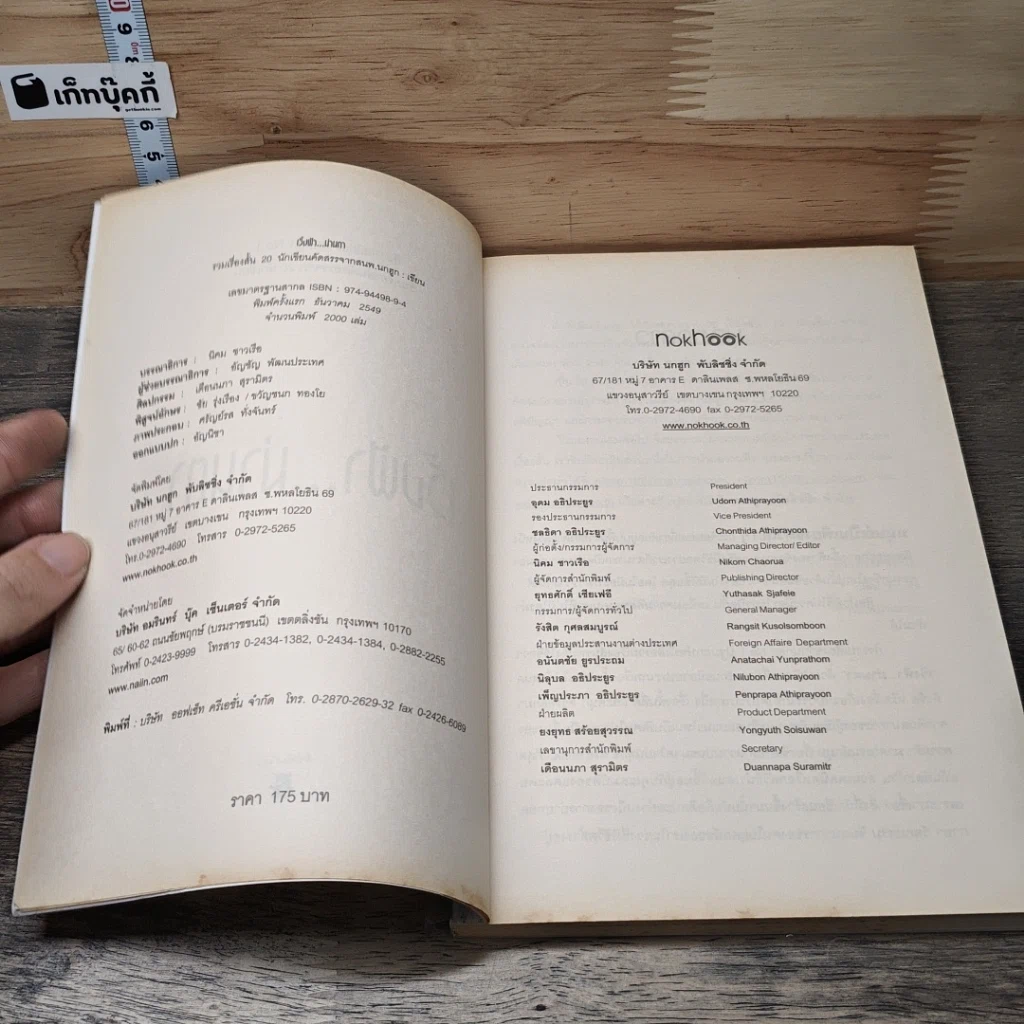 เก็ทบุ๊คกี้
เวิ้งฟ้า....ม่านตา
รวมเรื่องสั้น 20 นักเขียนคัดสรรจากสนพ.นกฮูก : เขียน
เลขมาตรฐานสากล ISBN : 974-94498-9-4
พิมพ์ครั้งแรก ธันวาคม 2549
จำนวนพิมพ์ 2000 เล่ม
บรรณาธิการ : นิคม ชาวเรือ
ผู้ช่วยบรรณาธิการ : ธัญชัญ พัฒนประเทศ
ศิลปกรรม : เดือนนภา สุรามิตร
พิสูจน์อักษร : ชัย รุ่งเรือง / ขวัญชนก ทองโย
ภาพประกอบ : ศรัญย์รส ทั่งจันทร์
ออกแบบปก : ธัญนิชา
จัดพิมพ์โดย
บริษัท นกฮูก พับลิชชิ่ง จำกัด
67/181 หมู่ 7 อาคาร E ดาลินเพลส ซ.พหลโยธิน 69
แขวงอนุสาวรีย์ เขตบางเขน กรุงเทพฯ 10220
โทร.0-2972-4690 โทรสาร 0-2972-5265
www.nokhook.co.th
จัดจำหน่ายโดย
บริษัท อมรินทร์ บุ๊ค เซ็นเตอร์ จำกัด
65/ 60-62 ถนนชัยพฤกษ์ (บรมราชชนนี) เขตตลิ่งชัน กรุงเทพฯ 10170
โทรศัพท์ 0-2423-9999 โทรสาร 0-2434-1382, 0-2434-1384, 0-2882-2255
www.naiin.com
พิมพ์ที่ : บริษัท ออฟเซ็ท ครีเอชั่น จำกัด โทร. 0-2870-2629-32 fax 0-2426-6089
ราคา 175 บาท
nokhook
บริษัท นกฮูก พับลิชชิ่ง จำกัด
67/181 หมู่ 7 อาคาร E ดาลินเพลส ซ.พหลโยธิน 69
แขวงอนุสาวรีย์ เขตบางเขน กรุงเทพฯ 10220
โทร.0-2972-4690 fax 0-2972-5265
www.nokhook.co.th
ประธานกรรมการ President
อุดม อธิประยูร Udom Athiprayoon
รองประธานกรรมการ Vice President
ชลธิดา อธิประยูร Chonthida Athiprayoon
ผู้ก่อตั้ง/กรรมการผู้จัดการ Managing Director/ Editor
นิคม ชาวเรือ Nikom Chaorua
ผู้จัดการสำนักพิมพ์ Publishing Director
ยุทธศักดิ์ เซียเฟอี Yuthasak Sjafeie
กรรมการ/ผู้จัดการทั่วไป General Manager
รังสิต กุศลสมบูรณ์ Rangsit Kusolsomboon
ฝ่ายข้อมูลประสานงานต่างประเทศ Foreign Affaire Department
อนันตชัย ยูรประถม Anatachai Yunprathom
นิลุบล อธิประยูร Nilubon Athiprayoon
เพ็ญประภา อธิประยูร Penprapa Athiprayoon
ฝ่ายผลิต Product Department
ยงยุทธ สร้อยสุวรรณ Yongyuth Soisuwan
เลขานุการสำนักพิมพ์ Secretary
เดือนนภา สุรามิตร Duannapa Suramitr